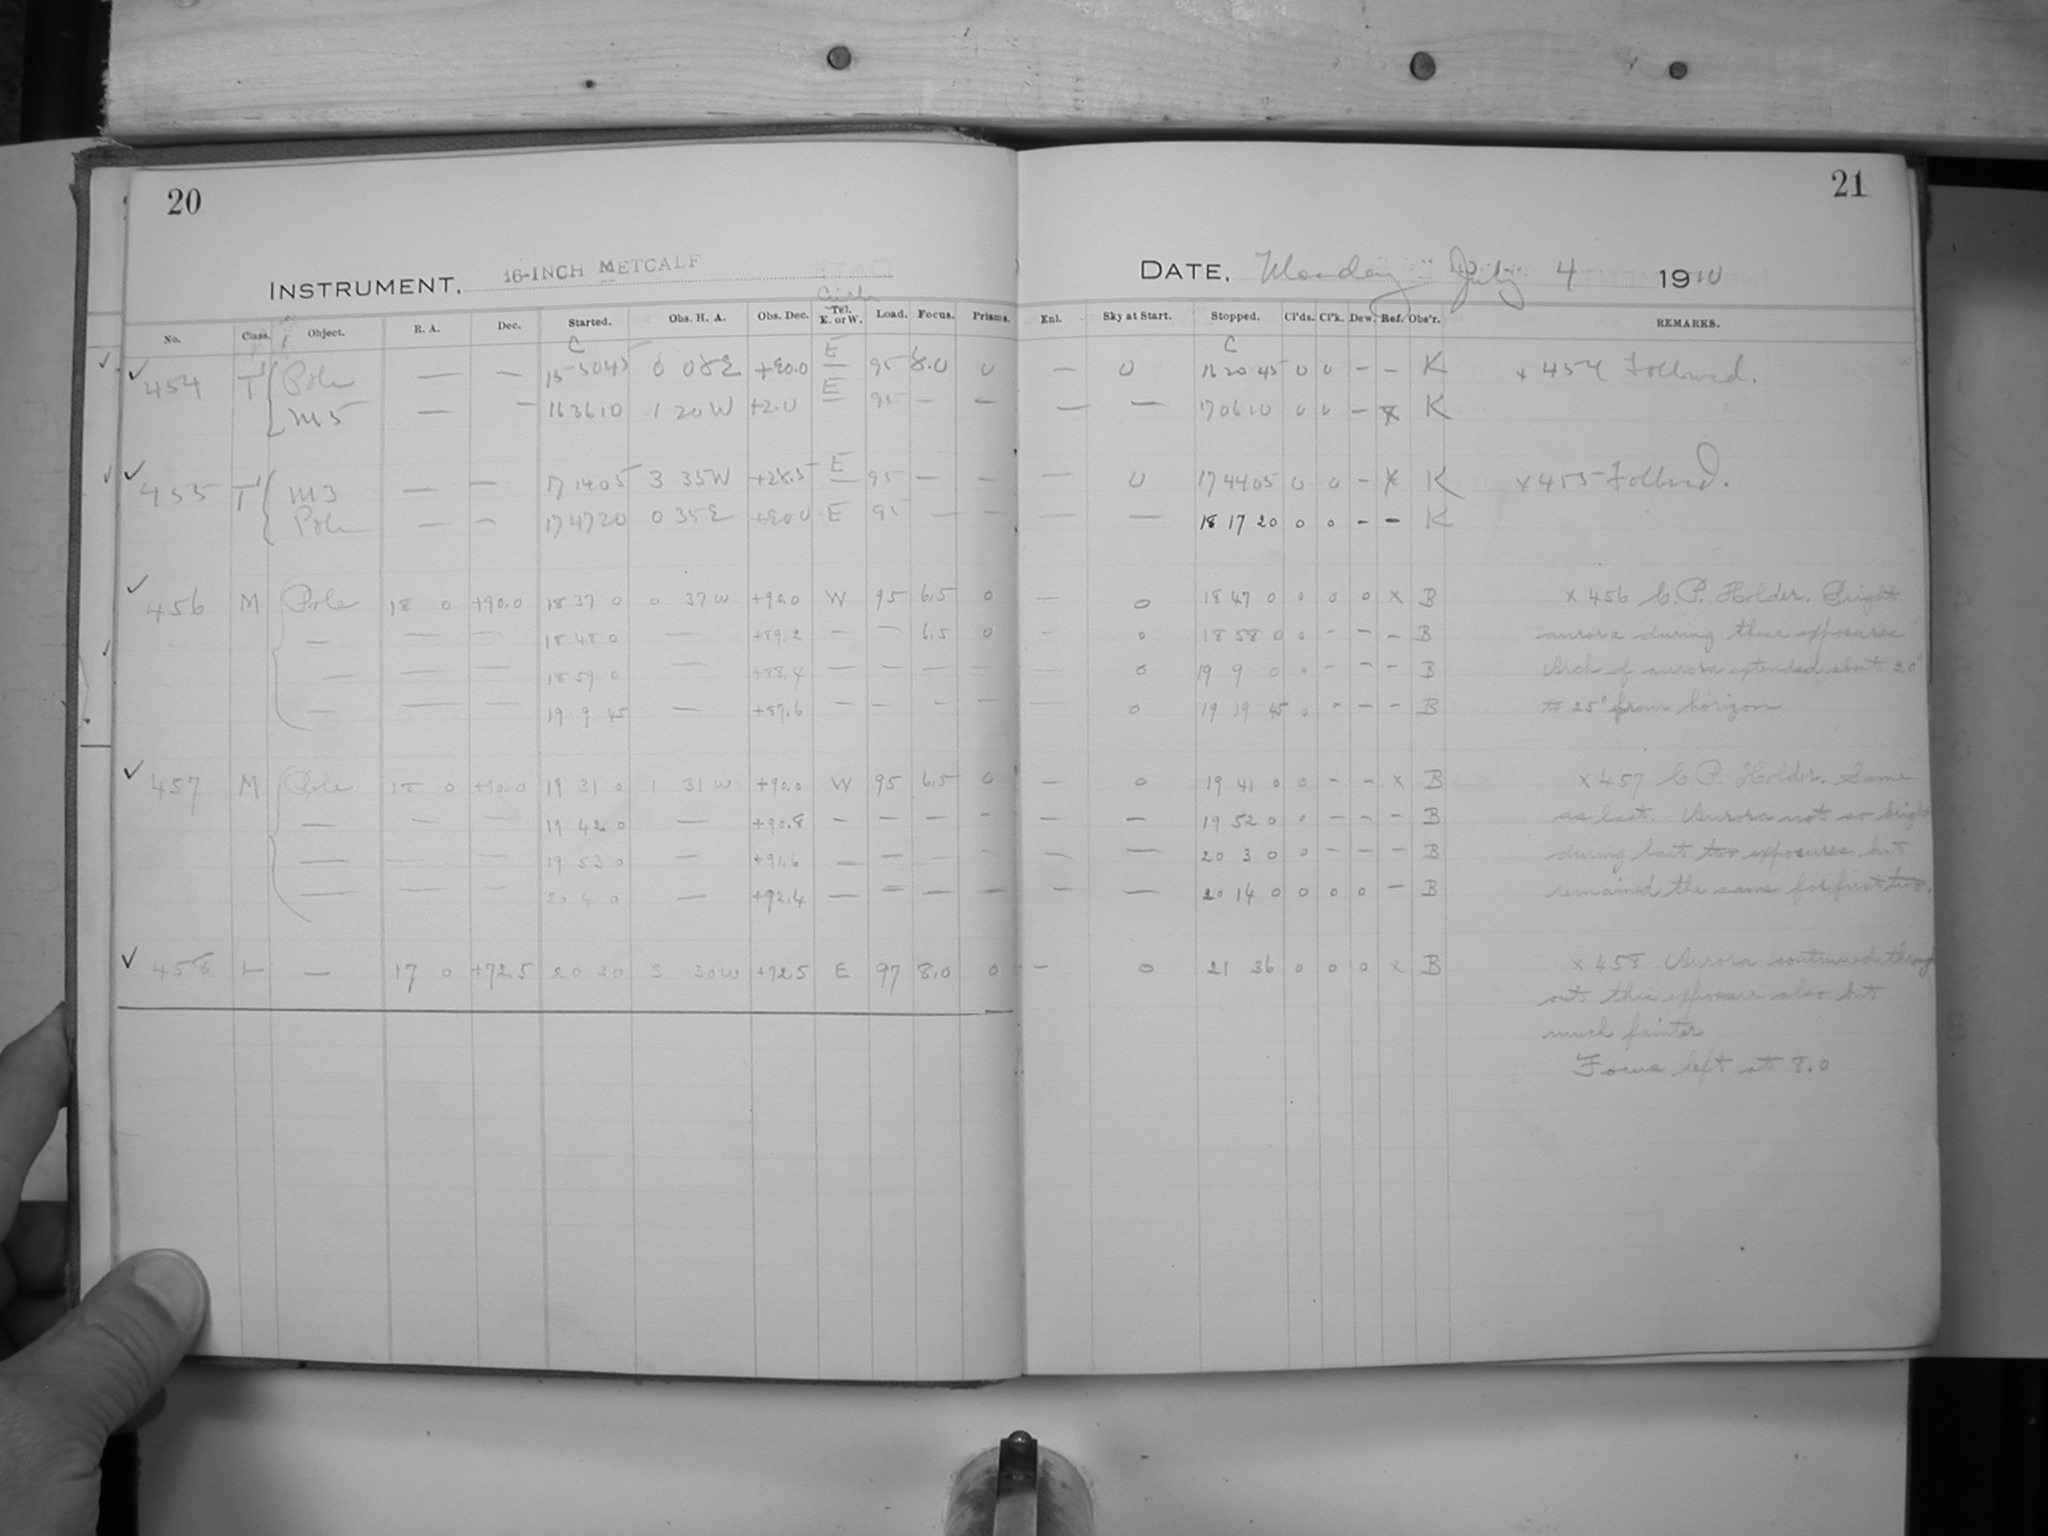 20
21
INSTRUMENT. 16-INCH METCALF
DATE. Monday July 4 1910
Circle
No. Class. Object. R. A. Dec. Started. Obs. H. A. Obs. Dec. Tel. E. or W. Load. Focus. Prisms. Enl. Sky at Start. Stopped. Cl'ds. Cl'k. Dew. Ref. Obs'r. REMARKS.
C E C
✓ 454 T Pole — — 15 50 45 0 08 E +90.0 — 95 8.0 0 — 0 16 20 45 0 0 – – K x 454 Followed.
M5 — — 16 36 10 1 20 W +2.0 E 95 — — — — 17 06 10 0 0 – x K
✓ 455 T M3 — — 17 14 05 3 35 W +28.5 E 95 — — — 0 17 44 05 0 0 – x K x 455 Followed.
Pole — — 17 47 20 0 35 E +90.0 E 95 — — — — 18 17 20 0 0 – – K
✓ 456 M Pole 18 0 +90.0 18 37 0 0 37 W +90.0 W 95 6.5 0 — 0 18 47 0 0 0 0 x B x 456 C.P. Holder. Bright
— — — 18 48 0 — +89.2 — — 6.5 0 — 0 18 58 0 0 – – – B aurora during these exposures
— — — 18 59 0 — +88.4 — — — — — 0 19 9 0 0 – – – B Arch of aurora extended about 20°
— — — 19 9 45 — +87.6 — — — — — 0 19 19 45 0 – – – B to 25° from horizon
✓ 457 M Pole 18 0 +90.0 19 31 0 1 31 W +90.0 W 95 6.5 0 — 0 19 41 0 0 – – x B x 457 C.P. Holder. Same
— — — 19 42 0 — +90.8 — — — — — — 19 52 0 0 – – – B as last. Aurora not so bright
— — — 19 53 0 — +91.6 — — — — — — 20 3 0 0 – – – B during last two exposures but
— — — 20 4 0 — +92.4 — — — — — — 20 14 0 0 0 0 – B remained the same for first two.
✓ 458 L — 17 0 +72.5 20 30 3 30 W +72.5 E 97 8.0 0 — 0 21 36 0 0 0 x B x 458 Aurora continued through
out this exposure also but
much fainter
Focus left at 8.0